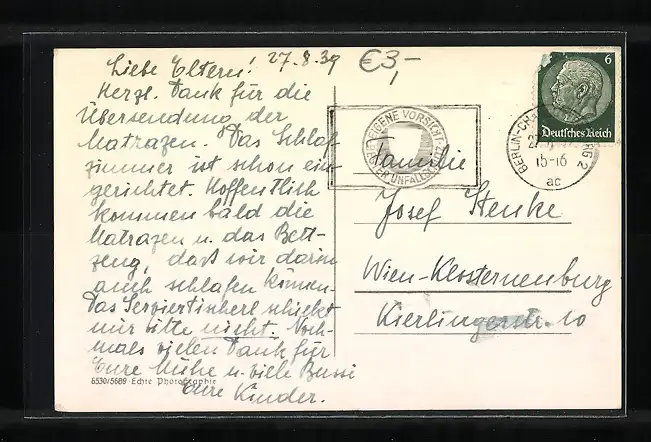 Liebe Eltern! 27.8.39
Herzl. Dank für die
Übersendung der
Matrazen. Das Schlaf
zimmer ist schon ein
gerichtet. Hoffentlich
kommen bald die
Matrazen u. das Bett-
zeug, daß wir darin
auch schlafen können.
Das Serviertischerl schickt
mir bitte nicht. Noch-
mals vielen Dank für
Eure Mühe u. viele Bussi
Eure Kinder.
6530/5689 Echte Photographie
€3,-
EIGENE VORSICHT
UNFALLSCHUTZ
6
Deutsches Reich
BERLIN-CHARLOTTENBURG 2
15-16
ac
Familie
Josef Stenke
Wien-Klosterneuburg
Kierlingerstr. 10